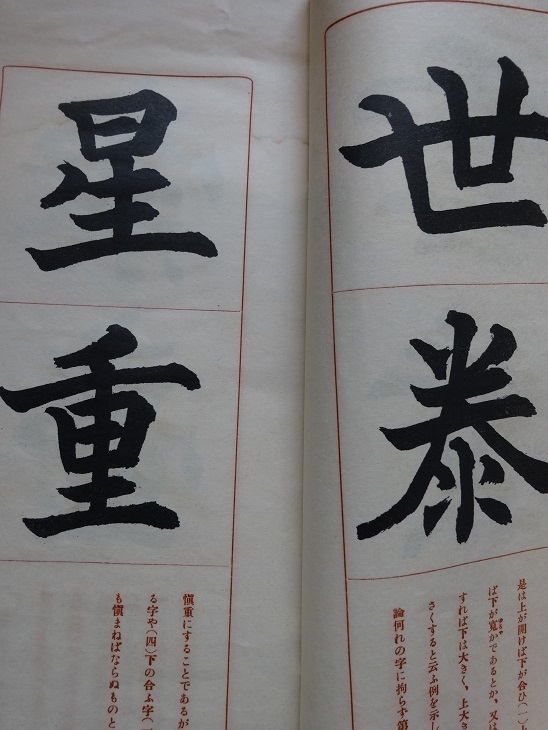 世
泰
是は上が開けば下が合ひ(一)上
ば下が寬かであるとか、又は
すれば下は大きく、上大き
さくすると云ふ例を示し
論何れの字に拘らず第
星
重
愼重にすることであるが
る字や(四)下の合ふ字(
も愼まねばならぬものと